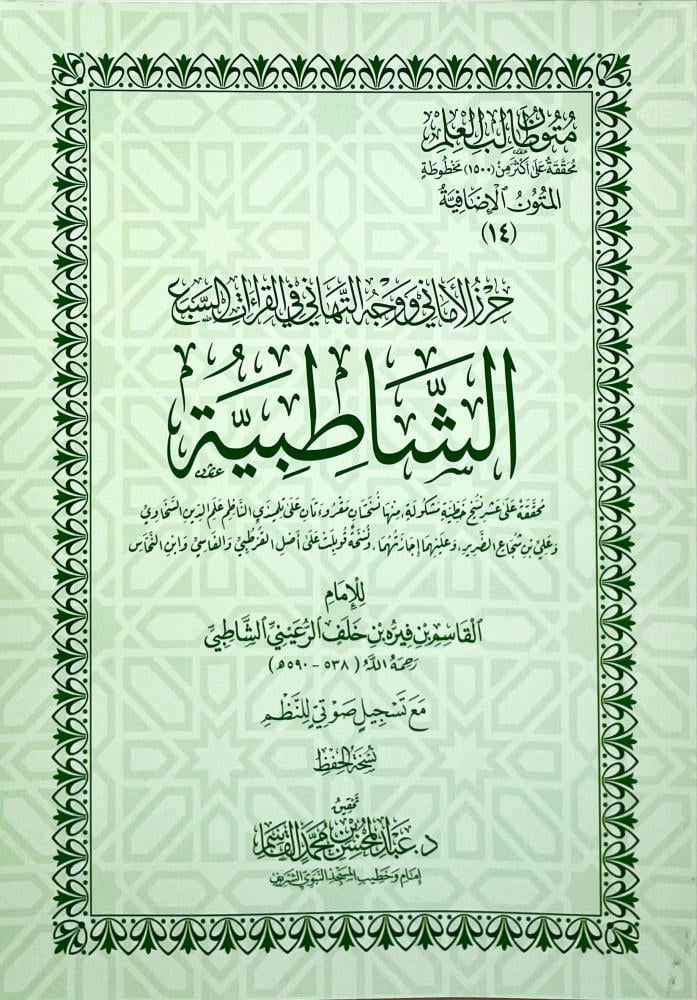 مُتُونُ طَالِبِ العِلْمِ
مُحَقَّقَةٌ عَلَى أَكْثَرَ مِنْ (١٥٠٠) مَخْطُوطَةٍ
المُتُونُ الإِضَافِيَّةُ
(١٤)
حِرْزُ الأَمَانِي وَوَجْهُ التَّهَانِي فِي القِرَاءَاتِ السَّبْعِ
الشَّاطِبِيَّةُ
مُحَقَّقَةٌ عَلَى عَشْرِ نُسَخٍ خَطِّيَّةٍ مَشْكُولَةٍ، مِنْهَا نُسْخَتَانِ مَقْرُوءَتَانِ عَلَى تِلْمِيذَيِ النَّاظِمِ عَلَمِ الدِّينِ السَّخَاوِيِّ
وَعَلِيِّ بْنِ شُجَاعٍ الضَّرِيرِ، وَعَلَيْهِمَا إِجَازَتُهُمَا، وَنُسْخَةٌ قُوبِلَتْ عَلَى أَصْلِ القُرْطُبِيِّ وَالفَاسِيِّ وَابْنِ النَّحَّاسِ
لِلْإِمَامِ
القَاسِمِ بْنِ فِيرُّه بْنِ خَلَفٍ الرُّعَيْنِيِّ الشَّاطِبِيِّ
رَحِمَهُ اللَّهُ (٥٣٨ - ٥٩٠ هـ)
مَعَ تَسْجِيلٍ صَوْتِيٍّ لِلنَّظْمِ
نُسْخَةُ الحِفْظِ
تَحْقِيقُ
د. عَبْدِ المُحْسِنِ بْنِ مُحَمَّدٍ القَاسِمِ
إِمَامِ وَخَطِيبِ المَسْجِدِ النَّبَوِيِّ الشَّرِيفِ